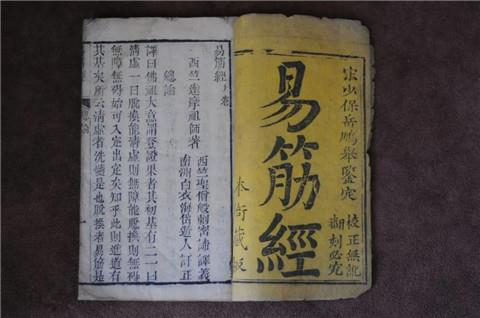 宋少保岳鵬舉鑒定
易筋經
校正無訛
翻刻必究
本衙藏板
易筋經
西竺達摩祖師著
西竺聖僧般剌密諦譯義
南洲白衣海岱遊人訂正
總論
譯曰佛祖大意謂登證果者其初基有二一曰
清虛一曰脫換能清虛則無障能脫換則無碍
無障無碍始可入定出定矣知乎此則進道有
其基矣所云清虛者洗髓是也脫換者易筋是